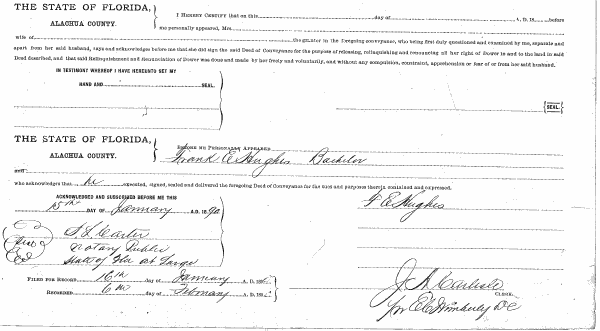 THE STATE OF FLORIDA,
ALACHUA COUNTY.
I HEREBY CERTIFY that on this day of A. D. 18 before
me personally appeared, Mrs.
wife of the grantor in the foregoing conveyance, who being first duly questioned and examined by me, separate and
apart from her said husband, says and acknowledges before me that she did sign the said Deed of Conveyance for the purpose of releasing, relinquishing and renouncing all her right of Dower in and to the land in said
Deed described, and that said Relinquishment and Renunciation of Dower was done and made by her freely and voluntarily, and without any compulsion, constraint, apprehension or fear of or from her said husband.
IN TESTIMONY WHEREOF I HAVE HEREUNTO SET MY
HAND AND SEAL.
SEAL.
THE STATE OF FLORIDA,
ALACHUA COUNTY.
BEFORE ME PERSONALLY APPEARED
Frank E Hughes Bachelor
and
who acknowledges that he executed, signed, sealed and delivered the foregoing Deed of Conveyance for the uses and purposes therein contained and expressed.
ACKNOWLEDGED AND SUBSCRIBED BEFORE ME THIS
15th DAY OF January A. D. 1890
F E Hughes
S. L. Carter
Notary Public
State of Fla at Large
FILED FOR RECORD 16th day of January A. D. 18
RECORDED 6th day of February A. D. 18
J A Carlisle
CLERK.
for E C Wimberly DC